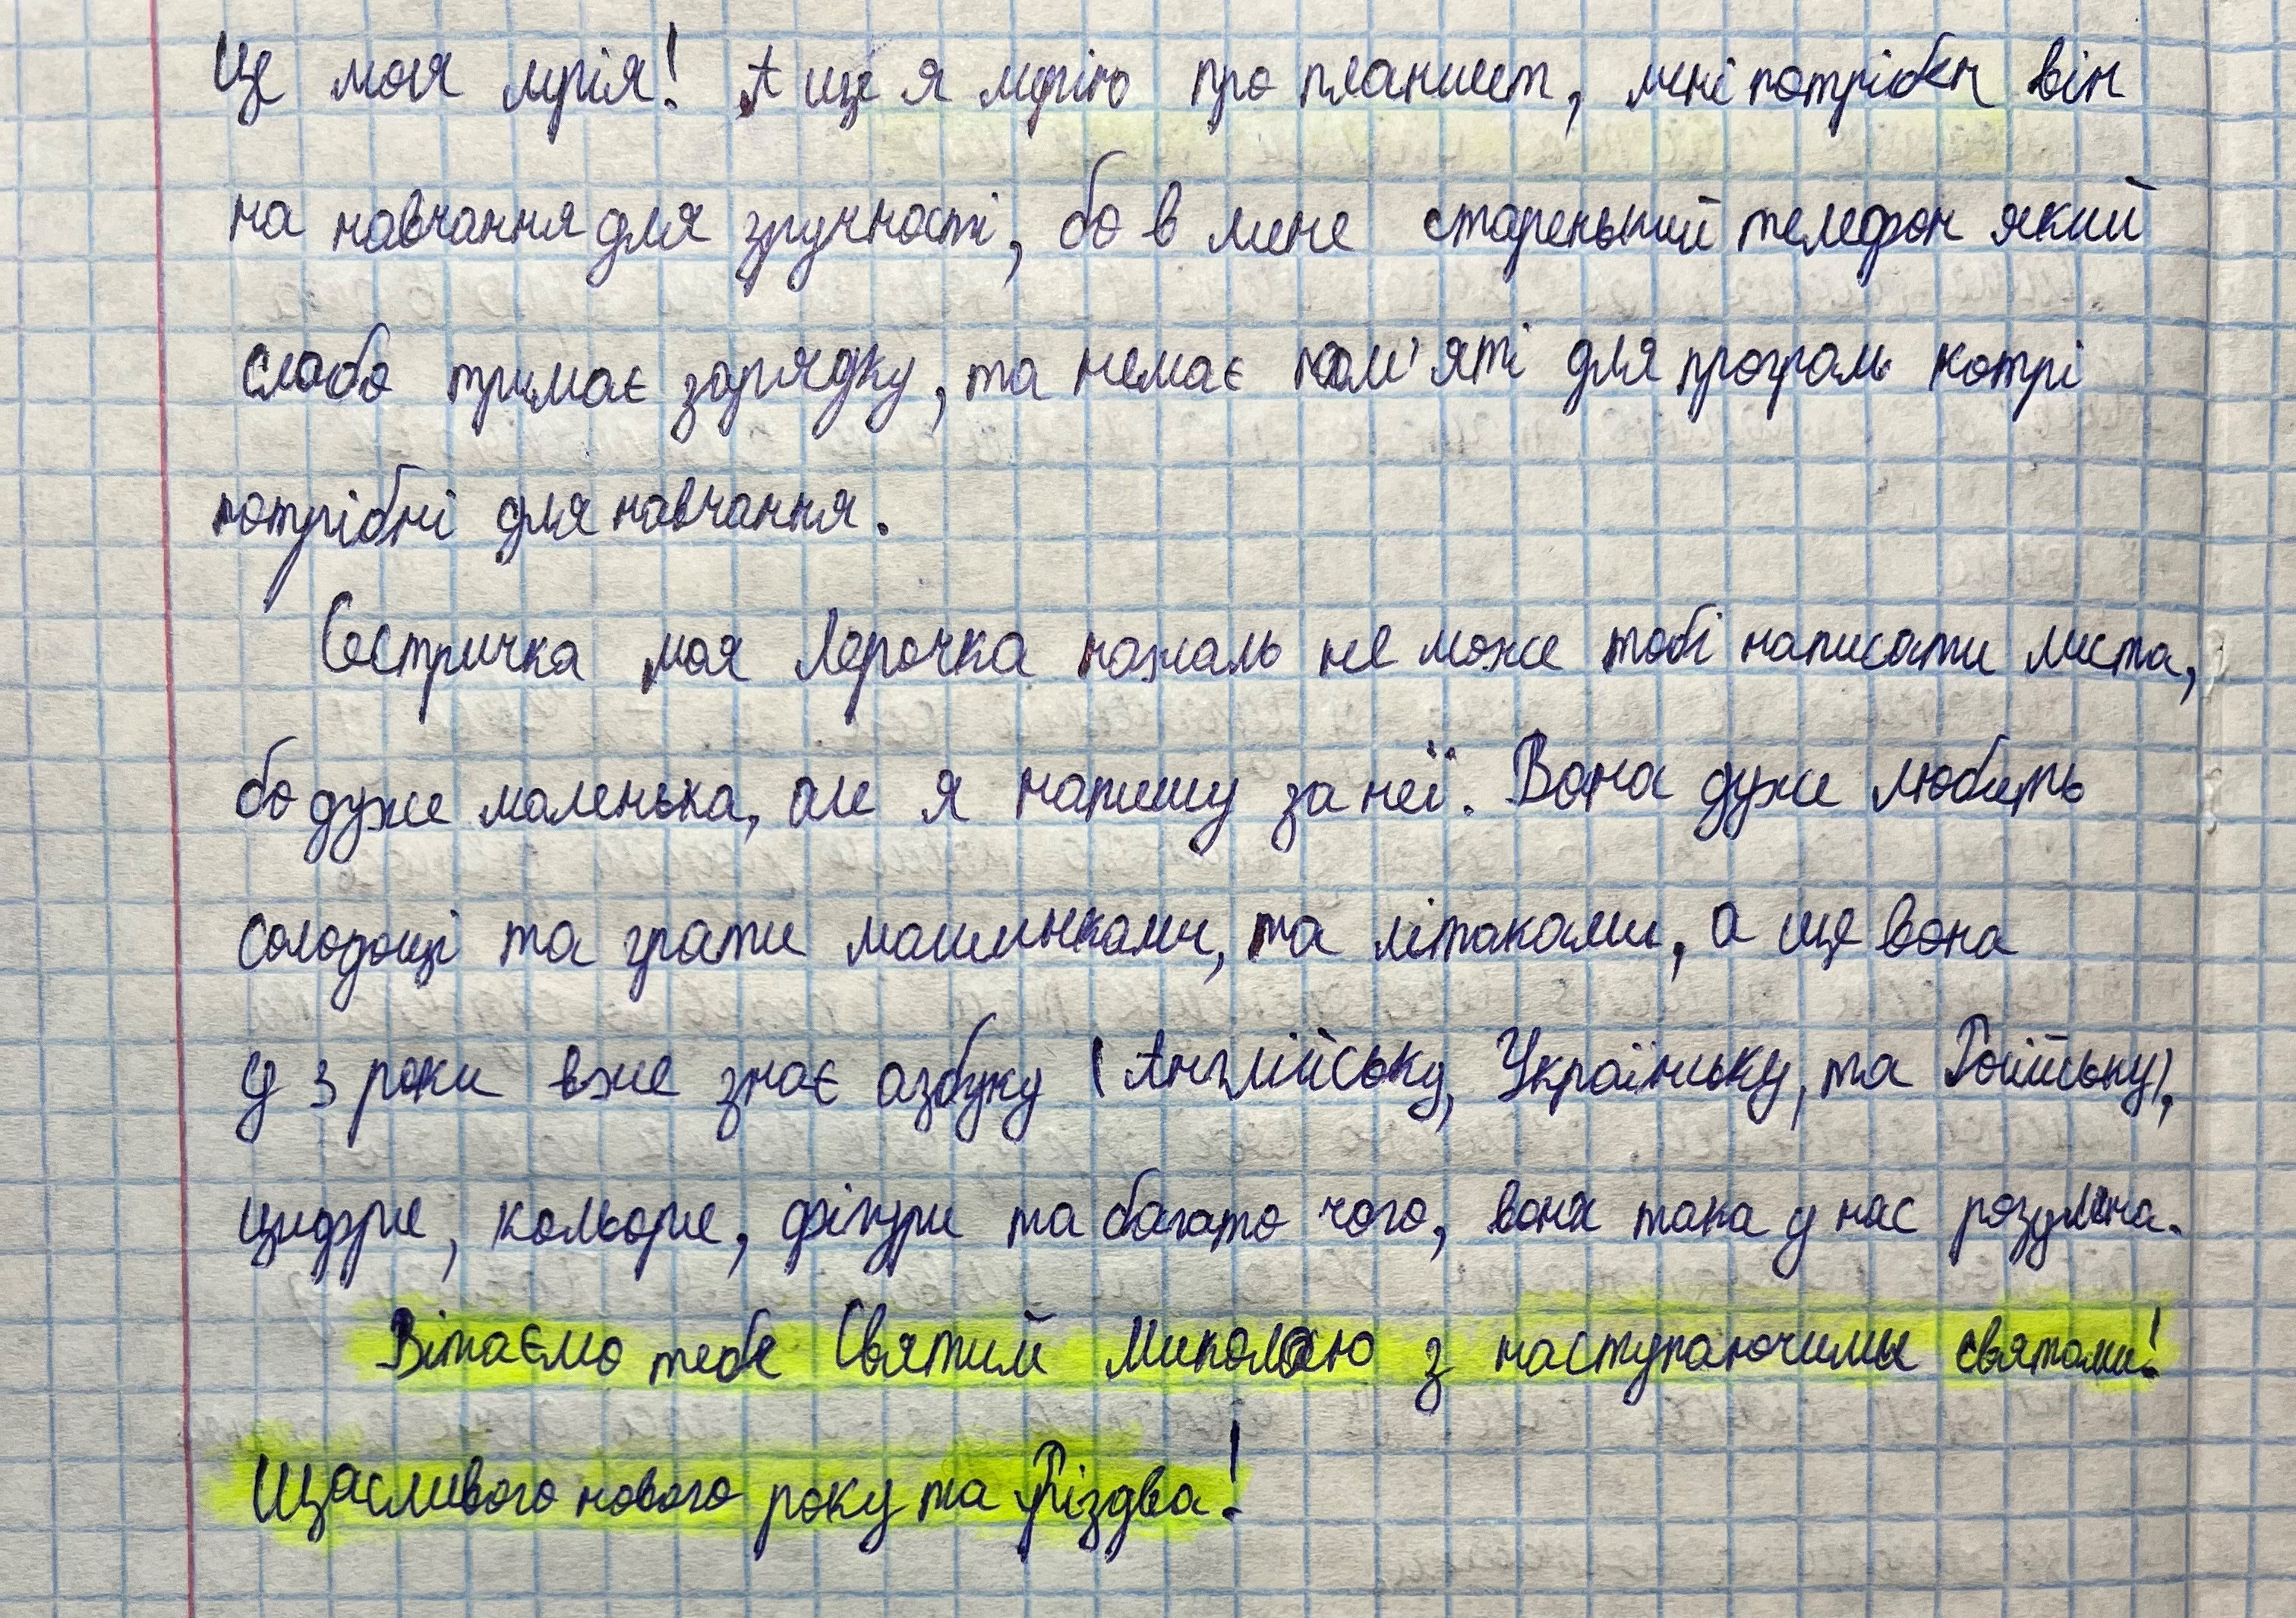 Це моя мрія! А ще я мрію про планшет, мені потрібен він
на навчання для зручності, бо в мене старенький телефон який
слабо тримає зарядку, та немає пам'яті для програм котрі
потрібні для навчання.
Сестричка моя Лерочка нажаль не може тобі написати листа,
бо дуже маленька, але я напишу за неї. Вона дуже любить
солодощі та грати машинками, та літаками, а ще вона
у 3 роки вже знає азбуку (Англійську, Українську, та Російську),
цифри, кольори, фігури та багато чого, вона така у нас розумна.
Вітаємо тебе Святий Миколаю з наступаючими святами!
Щасливого нового року та Різдва!